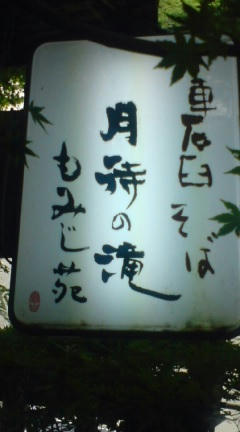 車石臼そば
月待の滝
もみじ苑